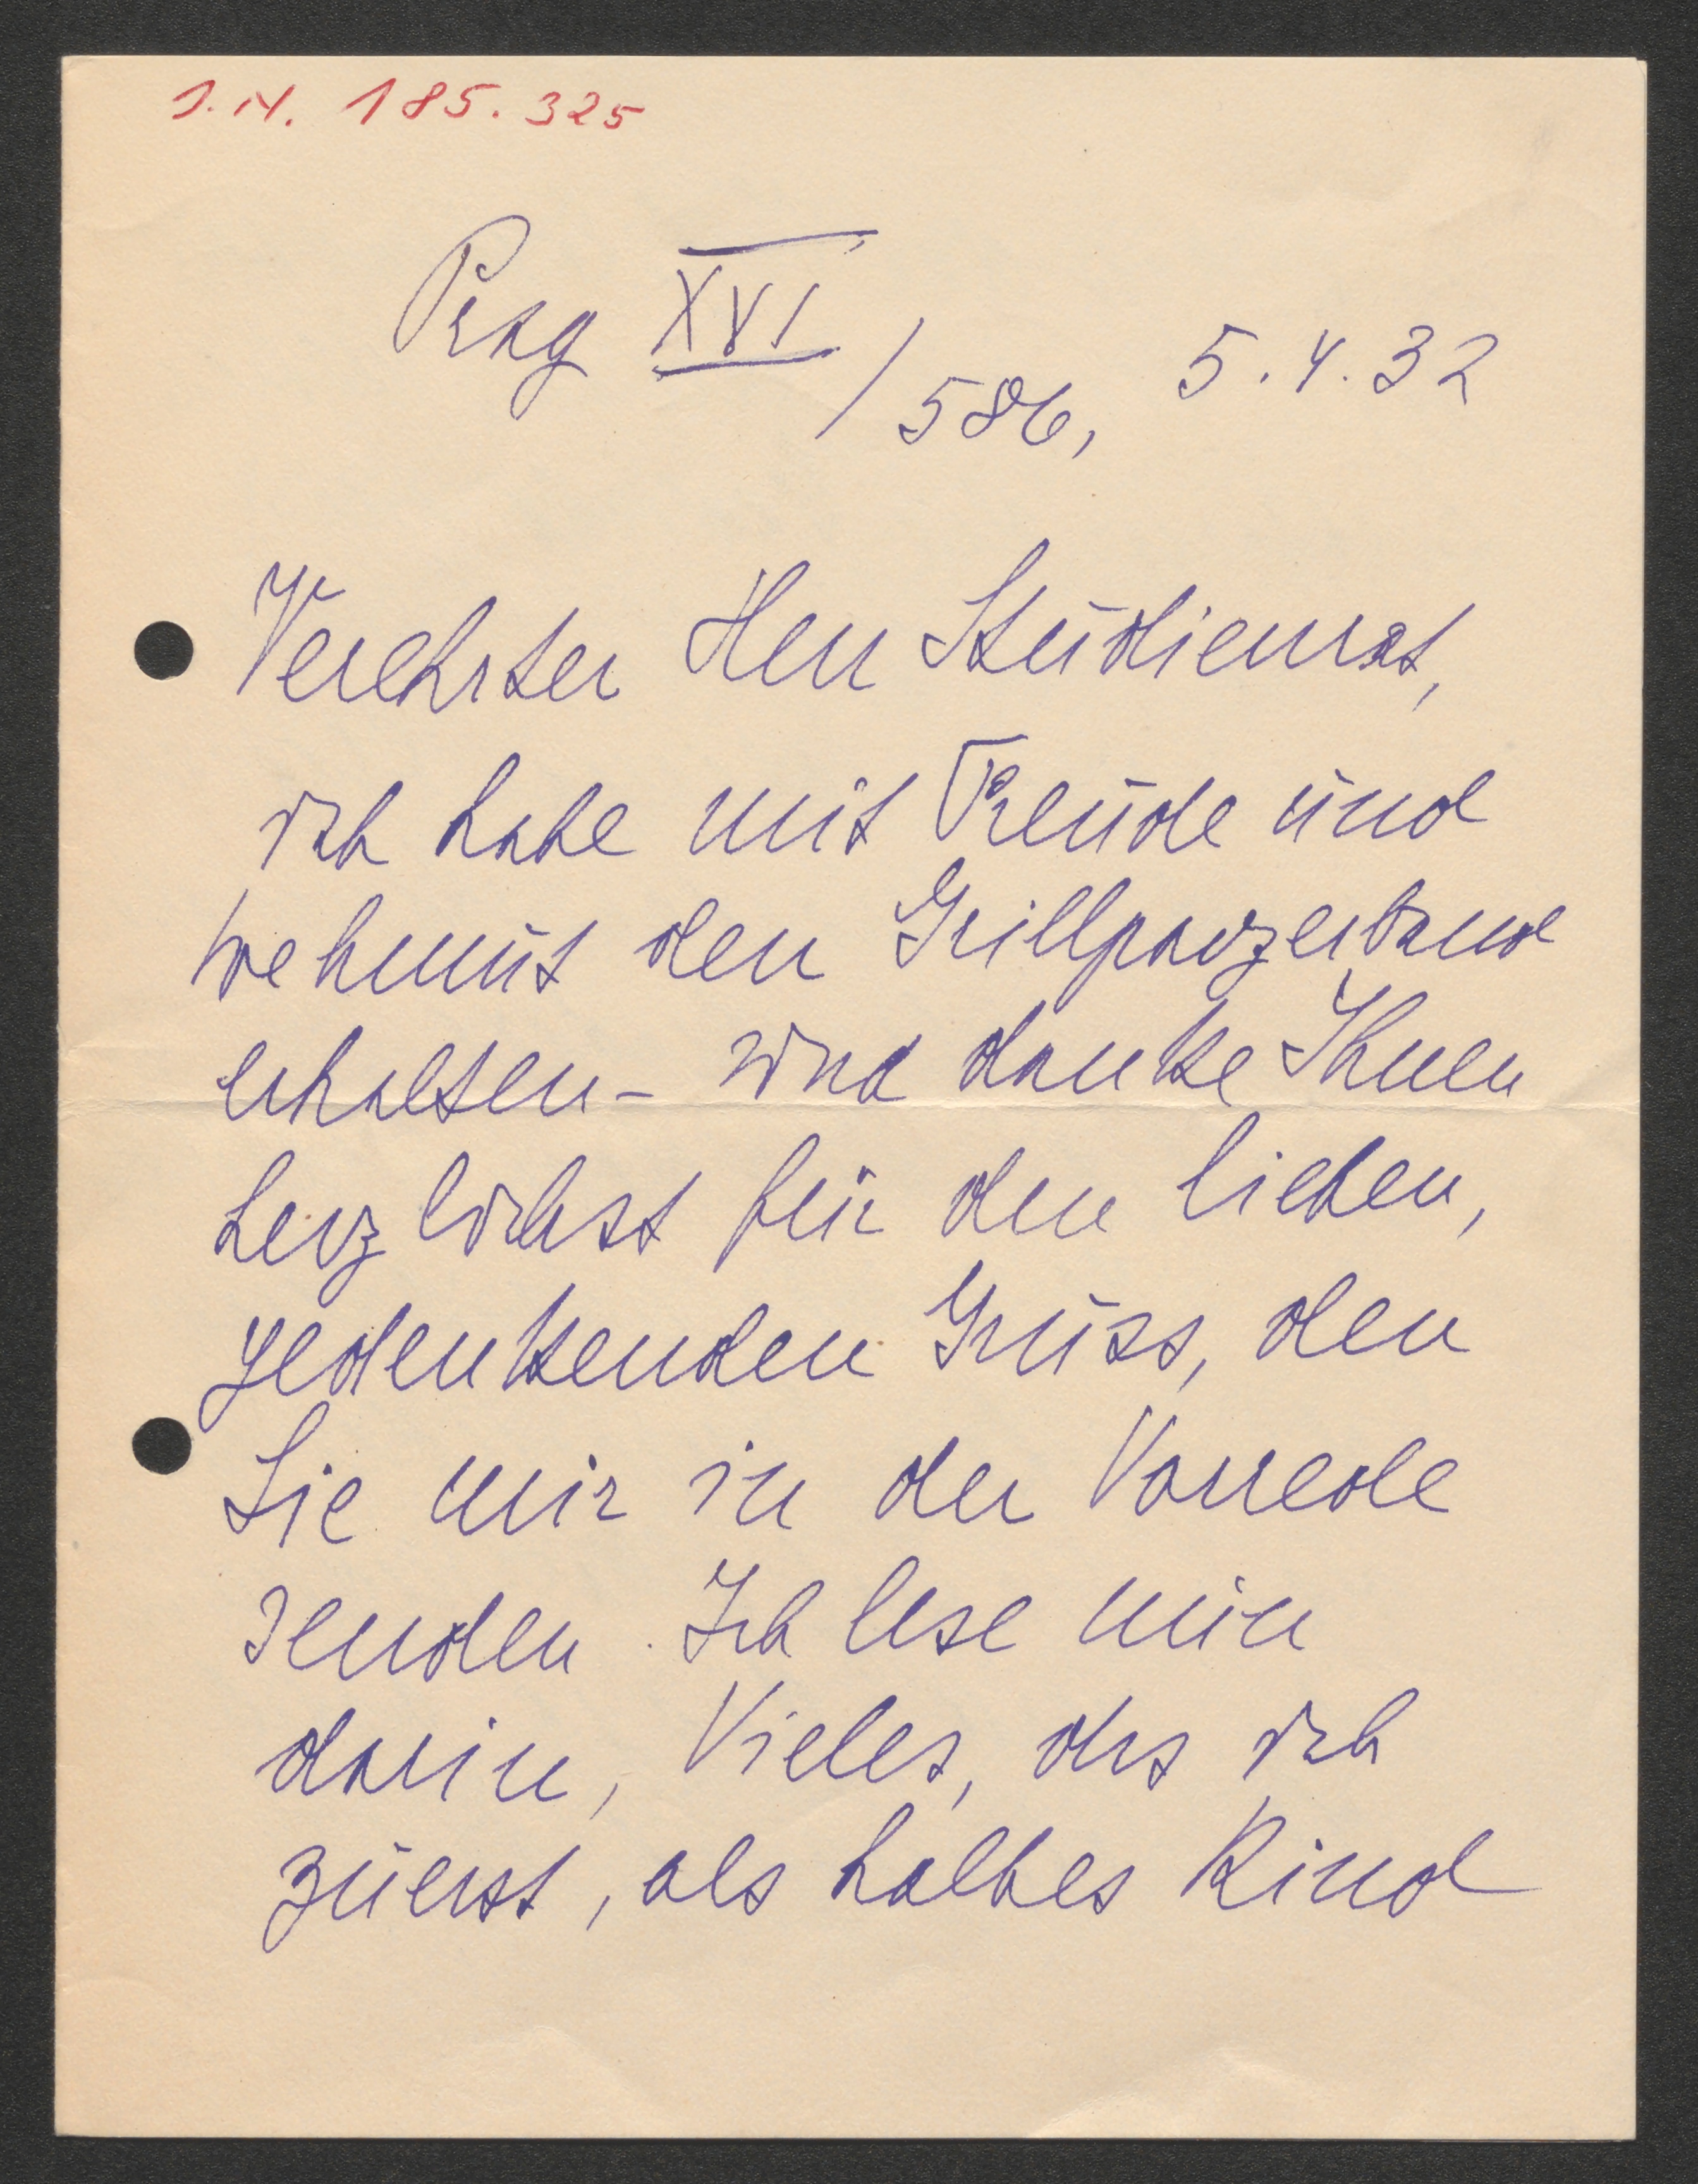 I.N. 185.325
Prag XVI / 586, 5.4.32
Verehrter Herr Studienrat,
ich habe mit Freude und
Wehmut den Grillparzerband
erhalten – und danke Ihnen
herzlichst für den lieben,
gedenkenden Gruss, den
Sie mir in der Vorrede
senden. Ich lese nun
darin, Vieles, das ich
zuerst, als halbes Kind